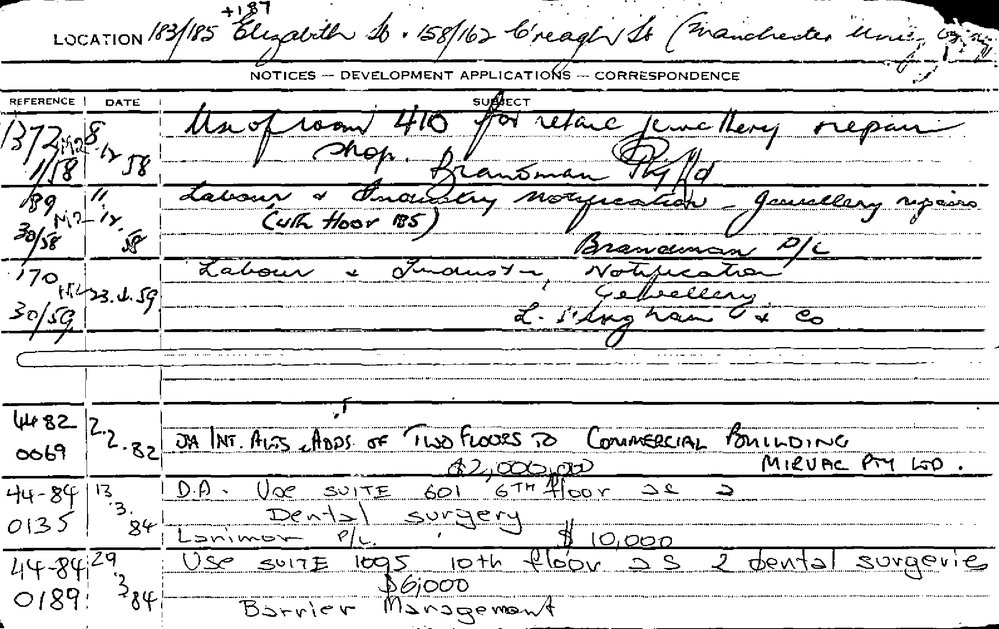 +187
LOCATION 183/185 Elizabeth St. 158/162 C'reagh St (Manchester Unity
NOTICES — DEVELOPMENT APPLICATIONS — CORRESPONDENCE
REFERENCE DATE SUBJECT
1372 M2 8 Use of room 410 for retail jewellery repair
1/58 12 58 shop. Brandman Pty Ltd
189 M2 11 Labour & Industry Notification - Jewellery repairs
30/58 12 58 (4th floor 185)
Brandman P/L
170 Labour & Industry Notification
23.4.59 Jewellery
30/59 & Co
4482 2.
0069 2.82 DA INT. ALTS & ADDS. OF TWO FLOORS TO COMMERCIAL BUILDING
$2,000,000 MIRVAC PTY LTD.
44-84 13 D.A. Use SUITE 601 6TH floor as a
0135 3. 84 Dental surgery
Larimor P/L. $10,000
44-84 29 Use SUITE 1005 10th floor as 2 dental surgeries
0189 3 84 $6,000
Barrier Management